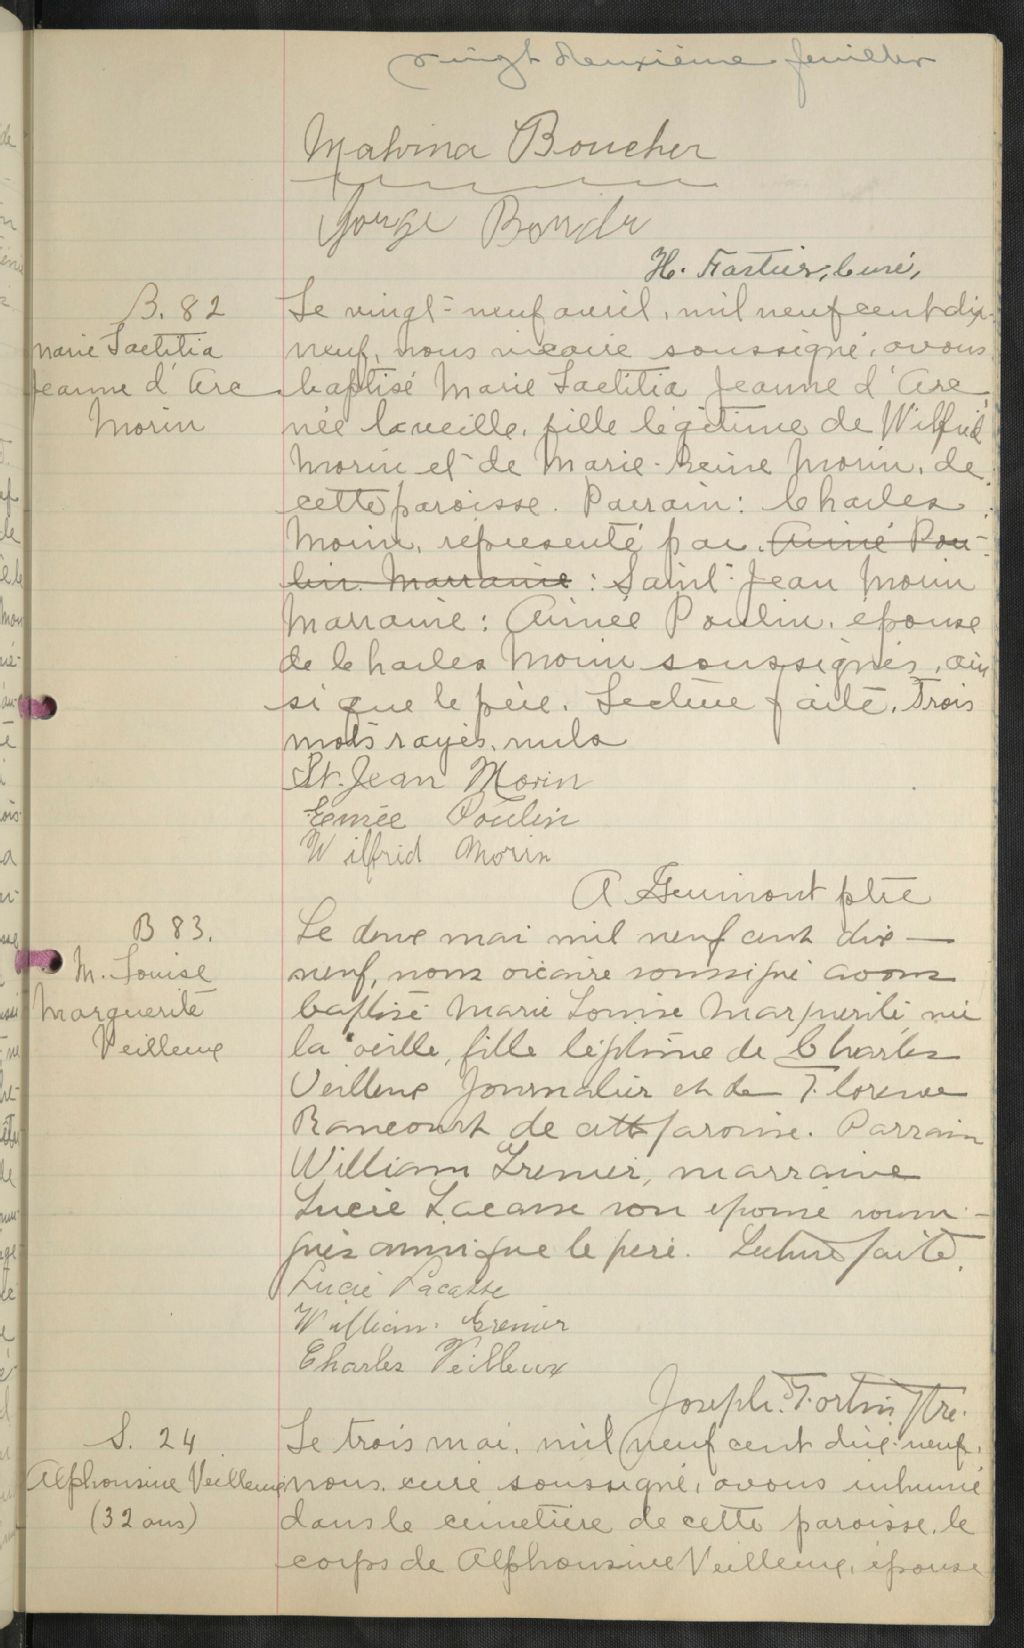 vingt deuxième feuillet
Malvina Boucher
George Boudr
H. Fortier, curé,
B. 82
Marie Laetitia
Jeanne d'Arc
Morin
Le vingt-neuf avril, mil neuf cent dix-
neuf, nous vicaire soussigné, avons
baptisé Marie Laetitia Jeanne d'Arc
née la veille, fille légitime de Wilfrid
Morin et de Marie-Reine Morin, de
cette paroisse. Parrain: Charles
Morin, représenté par Aimé Pou-
lin. Marraine : Saint-Jean Morin
Marraine: Aimée Poulin, épouse
de Charles Morin soussignés, ain
si que le père. Lecture faite. Trois
mots rayés, nuls
St. Jean Morin
Emée Poulin
Wilfrid Morin
A Guimont ptre
B 83.
M. Louise
Marguerite
Veilleux
Le deux mai mil neuf cent dix—
neuf, nous vicaire soussigné avons
baptisé Marie Louise Marguerite née
la veille, fille légitime de Charles
Veilleux journalier et de Florence
Rancourt de cette paroisse. Parrain
William Grenier, marraine
Lucie Lacasse son épouse soussi-
gnés ainsi que le père. Lecture faite.
Lucie Lacasse
William Grenier
Charles Veilleux
Joseph. T. Fortin Ptre.
S. 24
Alphonsine Veilleux
(32 ans)
Le trois mai, mil neuf cent dix-neuf,
nous, curé soussigné, avons inhumé
dans le cimetière de cette paroisse, le
corps de Alphonsine Veilleux, épouse